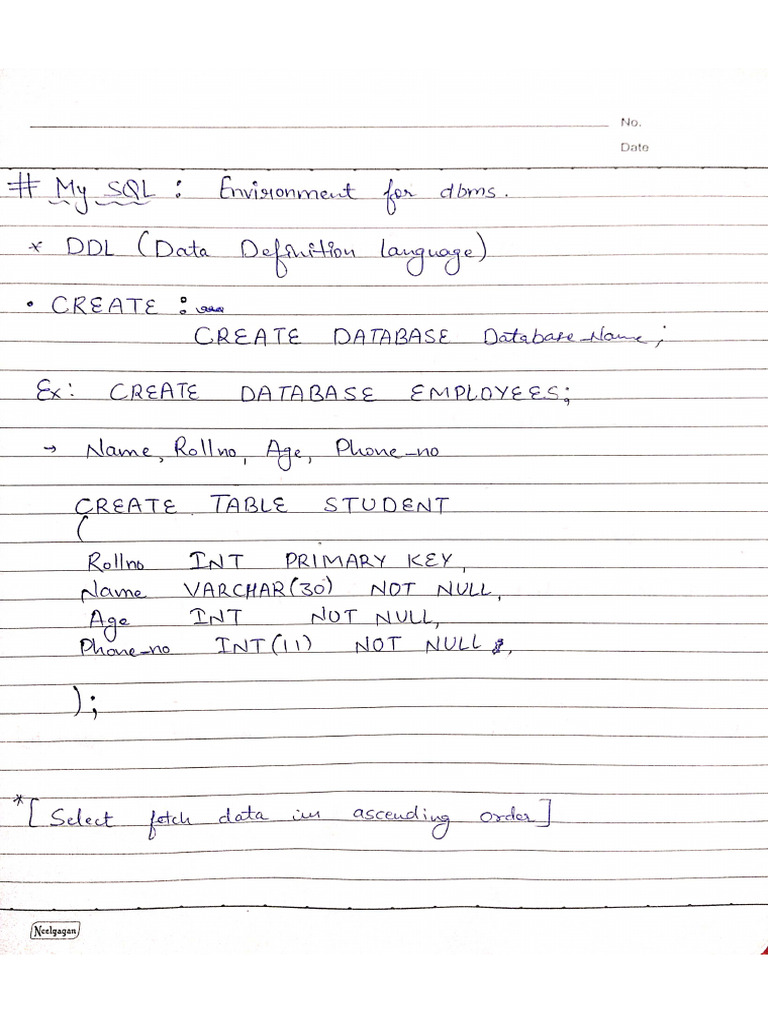 No.
Date
# My SQL : Environment for dbms.
* DDL (Data Definition language)
• CREATE :
CREATE DATABASE Database_Name;
Ex: CREATE DATABASE EMPLOYEES;
→ Name, Rollno, Age, Phone_no
CREATE TABLE STUDENT
(
Rollno INT PRIMARY KEY,
Name VARCHAR(30) NOT NULL,
Age INT NOT NULL,
Phone_no INT(11) NOT NULL,
);
*[Select fetch data in ascending order]
Neelgagan